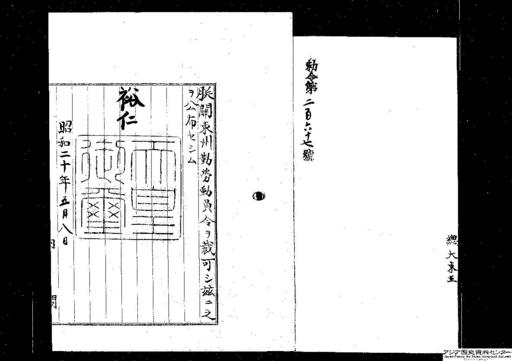 勅令第二百六十七號
總、大東亜
朕關東州勤勞動員令ヲ裁可シ茲ニ之
ヲ公布セシム
裕仁
天皇御璽
昭和二十年五月八日
内閣
アジア歴史資料センター
Japan Center for Asian Historical Records